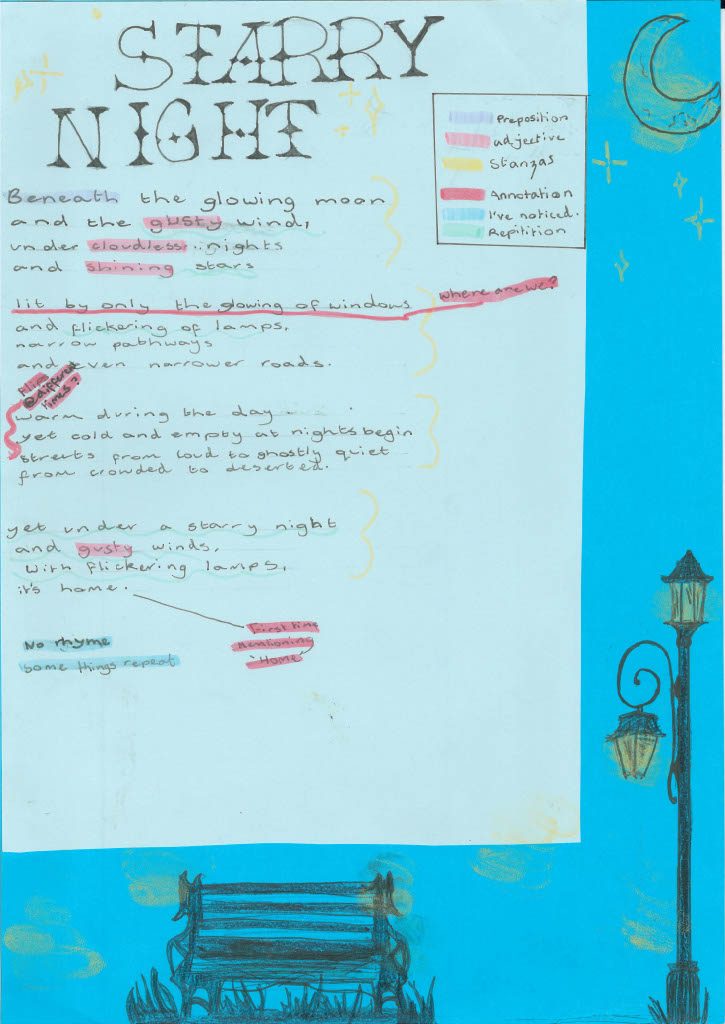 STARRY
NIGHT
Preposition
adjective
Stanzas
Annotation
I've noticed.
Repitition
Beneath the glowing moon
and the gusty wind,
under cloudless nights
and shining stars
lit by only the glowing of windows
where are we?
and flickering of lamps,
narrow pathways
and even narrower roads.
Flips
@different
times?
warm during the day
yet cold and empty at nights begin
streets from loud to ghostly quiet
from crowded to deserted.
yet under a starry night
and gusty winds,
with flickering lamps,
it's home.
First time
mentioning
'Home'
No rhyme
some things repeat